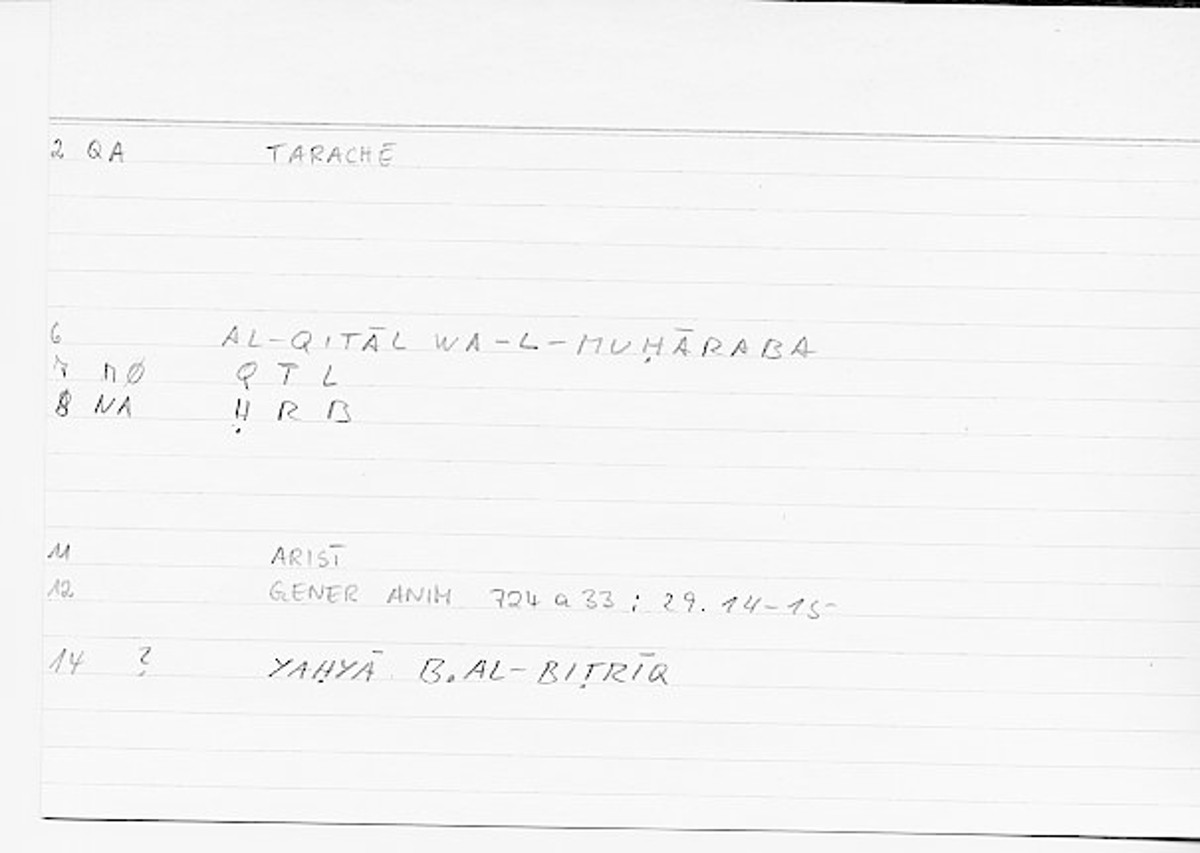 2 QA TARACHĒ
6 AL-QITĀL WA-L-MUḤĀRABA
7 MØ Q T L
8 NA Ḥ R B
11 ARIST
12 GENER ANIM 724 a 33 ; 29. 14-15
14 ? YAḤYĀ B. AL-BIṬRĪQ